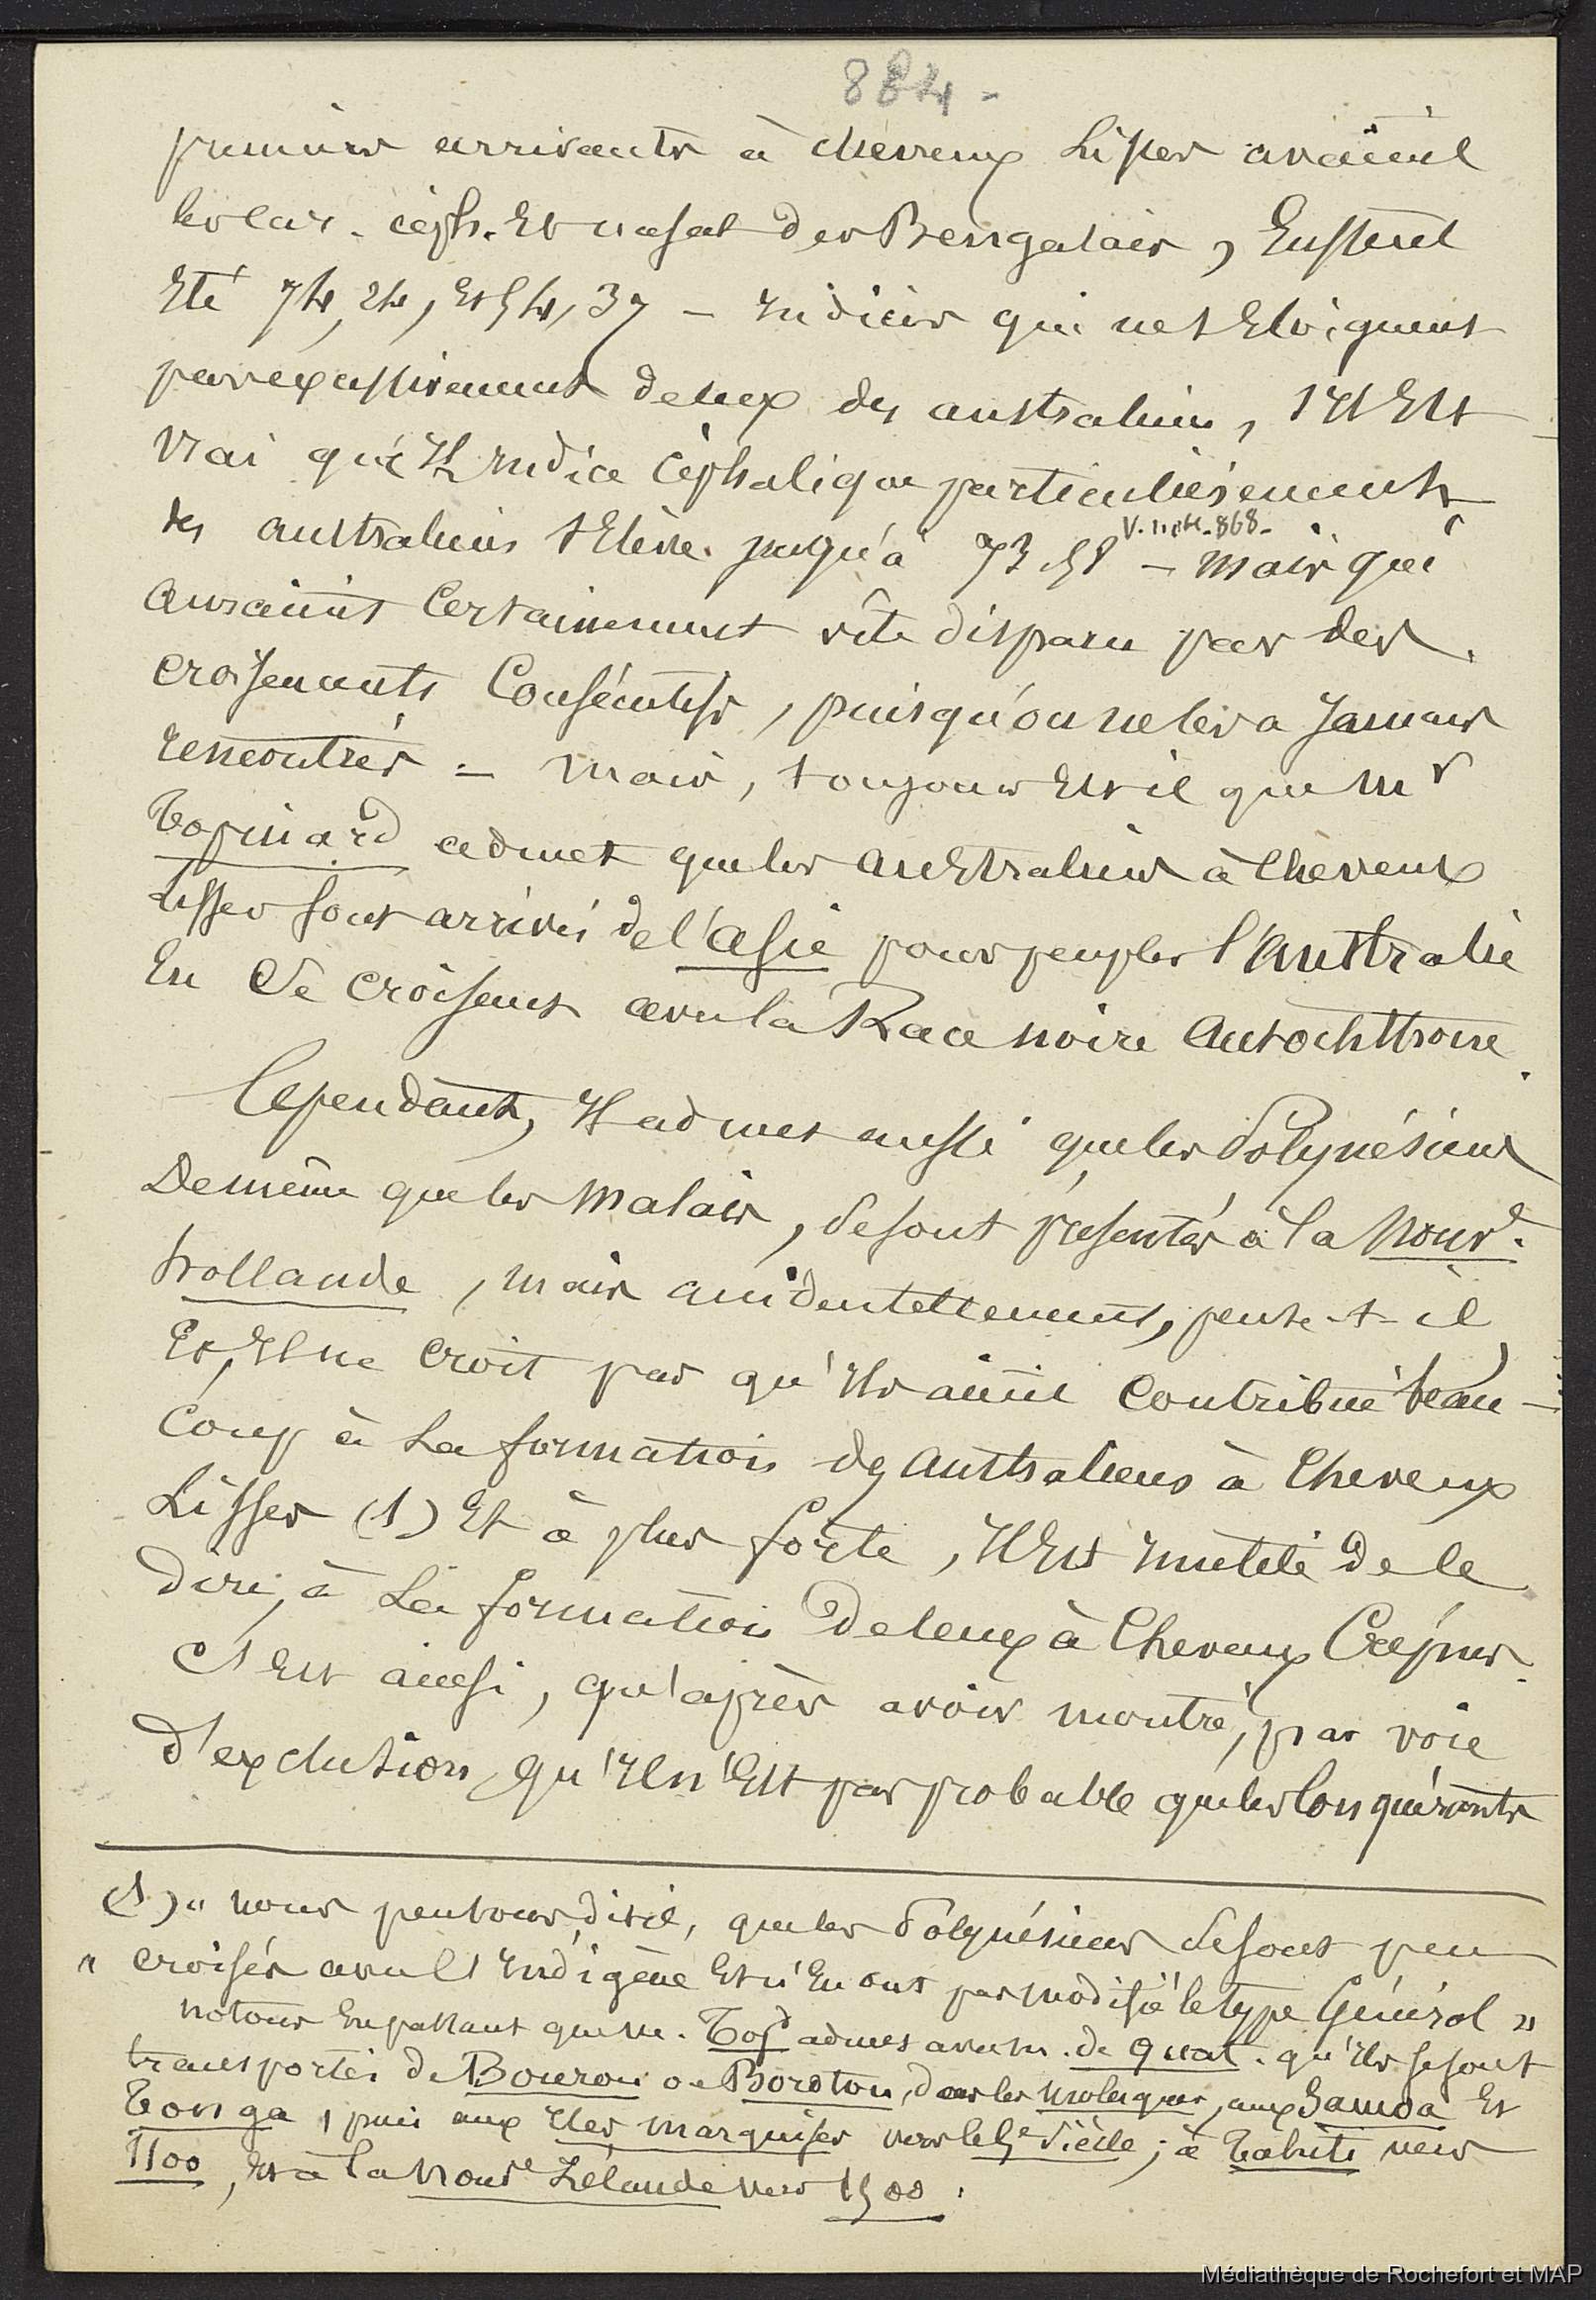 884 -
premiers arrivants à cheveux Lisses avaient
les car. céph. Et nasal des Bengalais, Eussent
Eté 74,24, Et 54,37 - Indices qui ne s'Eloignent
pas excessivement de ceux des australiens, s'il Est
Vrai que l'Indice Céphalique particulièrement
des australiens s'Elève jusqu'à 73.58 - mais qui
V. note. 868 -
Auraient Certainement vite disparu par des
croisements Consécutifs, puisqu'on ne les a Jamais
rencontrés - mais, toujours Est il que Mr
Topinard admet que les Australiens à Cheveux
Lisses sont arrivés de l'Asie pour peupler l'Australie
En Se croisant avec la Race noire Autochthone.
Cependant, Il admet aussi que les Polynésiens
De même que les Malais, se sont présentés à la Nouve.
hollande, mais accidentellement, pense-t-il,
Et, Il ne croit pas qu'Ils aient Contribué beau-
Coup à La formation des Australiens à Cheveux
Lisses (1) Et à plus forte, Il Est Inutile de le
dire, à La formation de ceux à Cheveux Crépus.
C'Est ainsi, qu'après avoir montré, par voie
d'exclusion, qu'Il n'Est pas probable que les Conquérants
(1) " nous pensons, dit il, que les Polynésiens se sont peu
" croisés avec l'Indigène Et n'En ont pas modifié le type Général "
notons En passant que M. Topd admet avec M. de Quat. qu'Ils se sont
transportés de Bouron ou Boroton, dans les Moluques, aux Samoa Et
Tonga, puis aux Iles Marquises vers le 5e Siècle; à Tahiti vers
1100, Et à la Nouve Zélande vers 1500.
Médiathèque de Rochefort et MAP